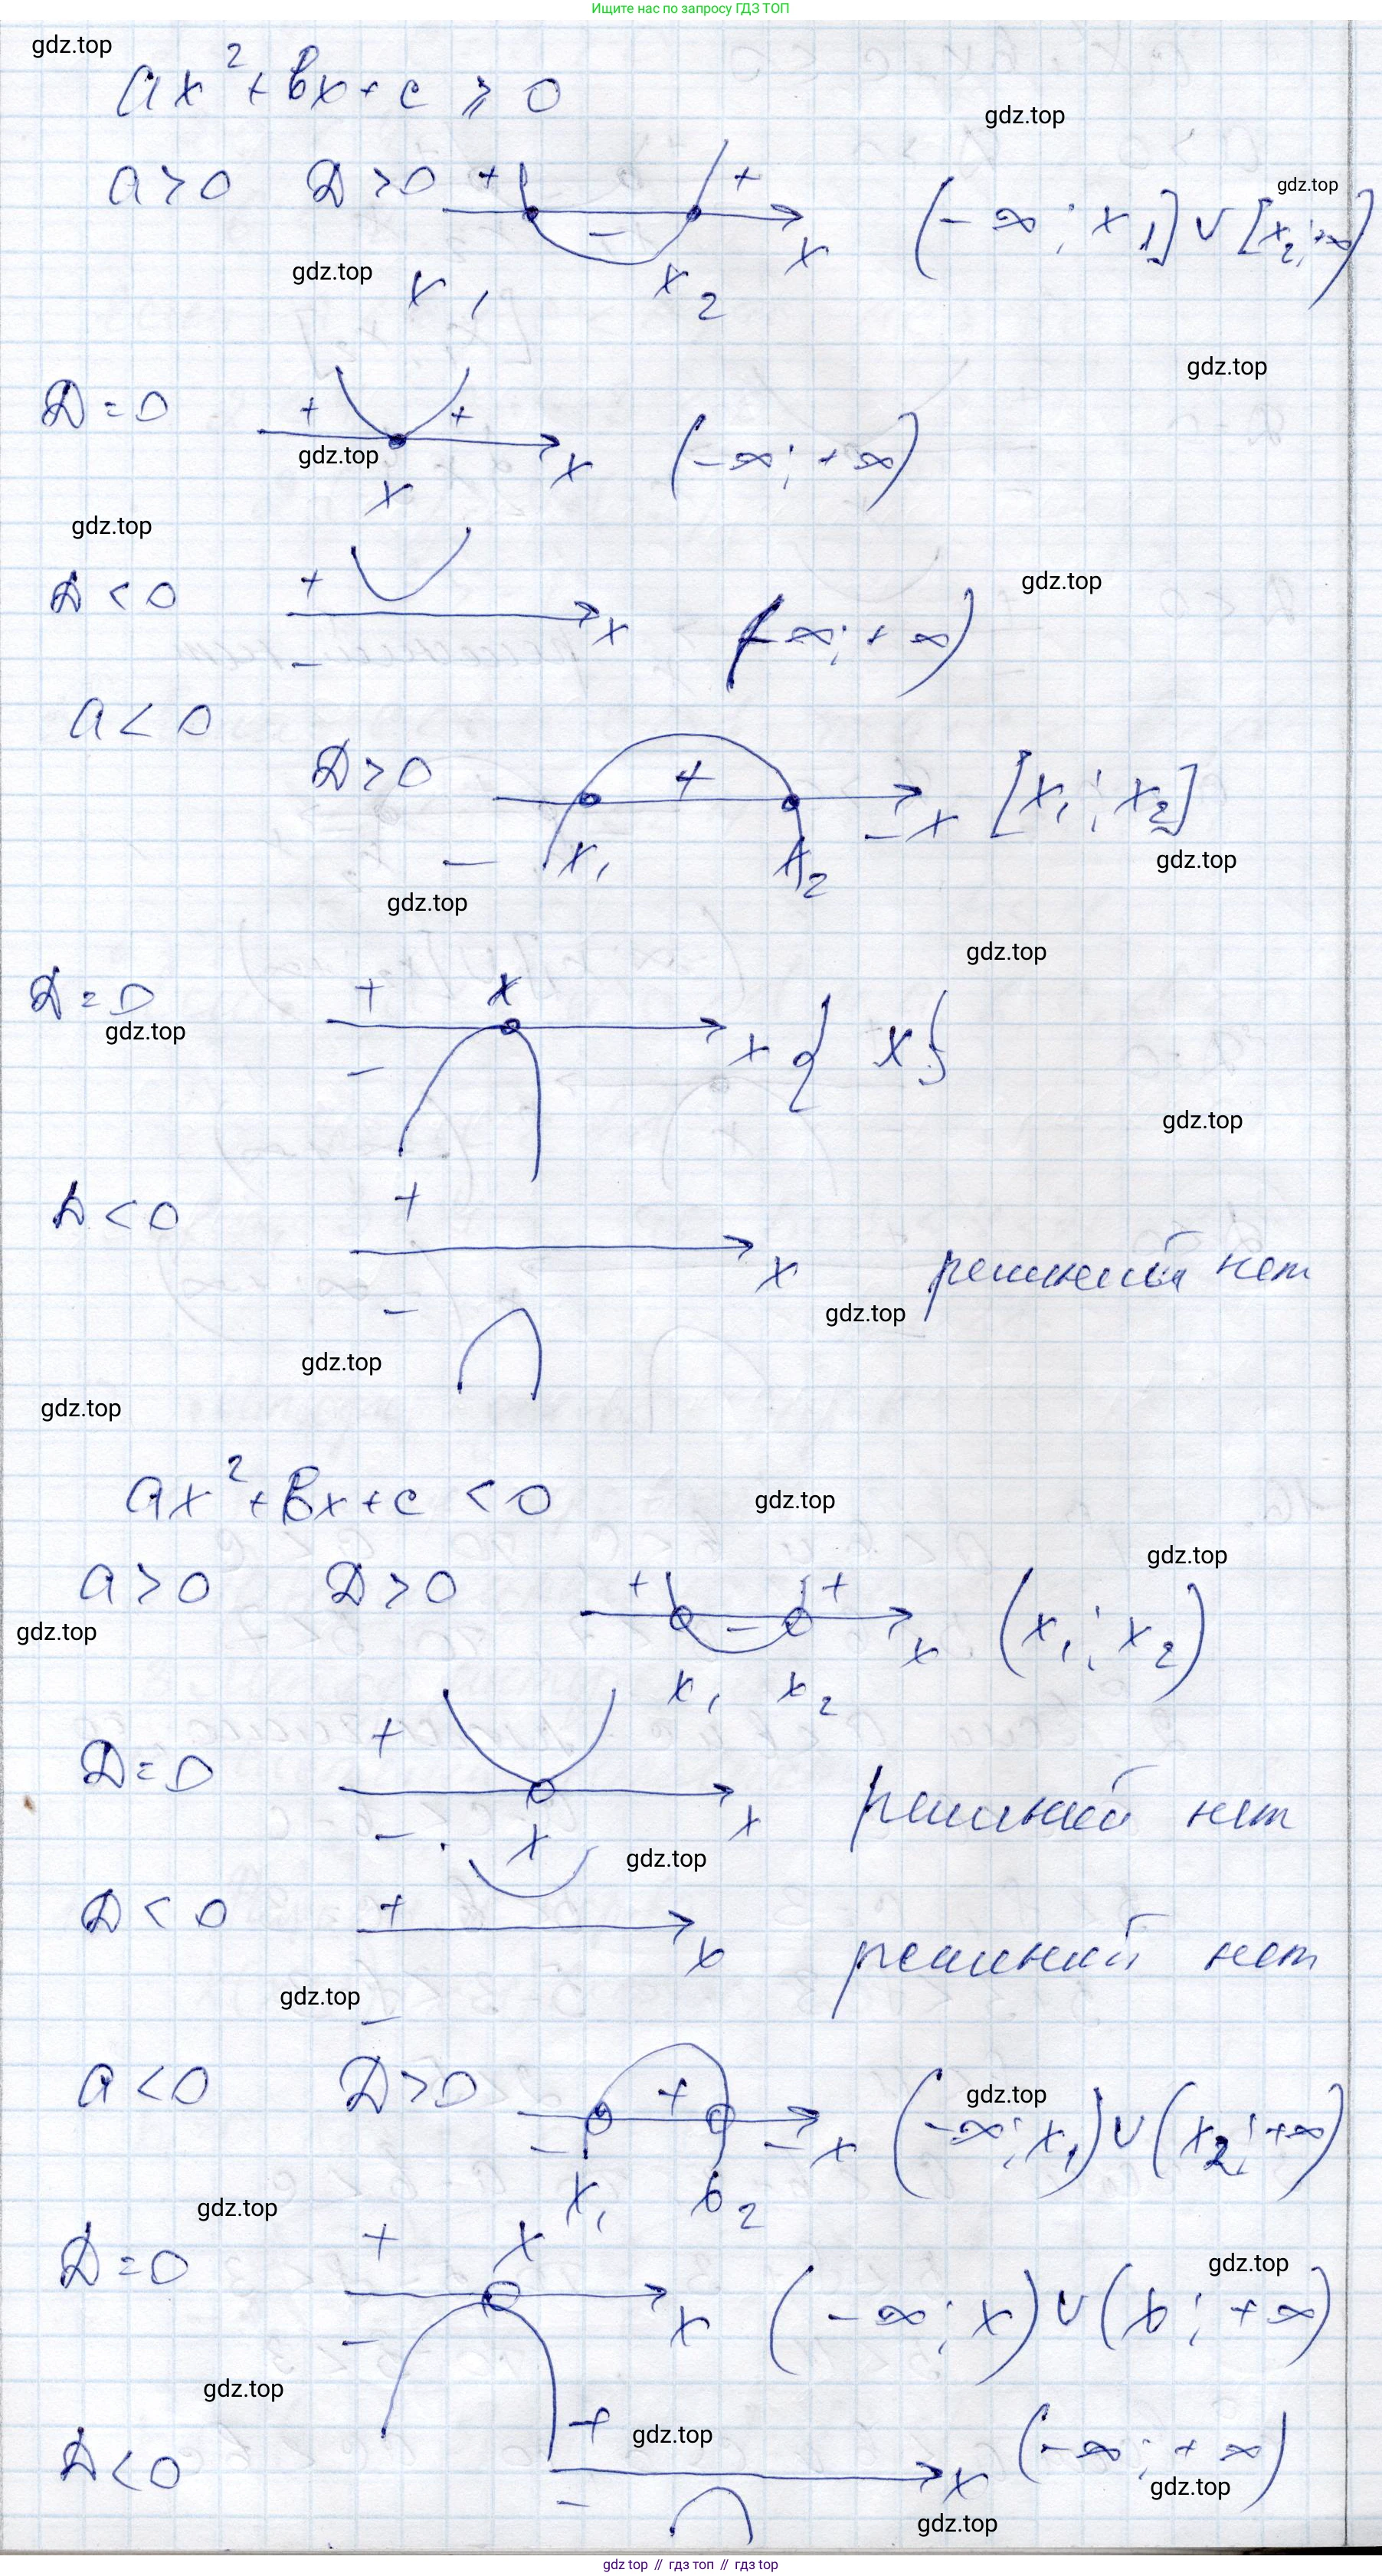 Ищите нас по запросу ГДЗ ТОП
gdz.top
ax² + bx + c ⩾ 0
gdz.top
a > 0 D > 0 + − + x (−∞; x₁] ∪ [x₂; +∞)
gdz.top
gdz.top x₁ x₂
gdz.top
D = 0 + + x (−∞; +∞)
gdz.top
x
gdz.top
D < 0 + x (−∞; +∞)
gdz.top
−
a < 0
D > 0 + − x [x₁; x₂]
− x₁ x₂
gdz.top
gdz.top
gdz.top
D = 0 + x
gdz.top
− x { x }
gdz.top
D < 0 +
x решений нет
gdz.top
−
gdz.top
gdz.top
ax² + bx + c < 0
gdz.top
gdz.top
a > 0 D > 0 + − + x (x₁; x₂)
gdz.top
x₁ x₂
D = 0 + x решений нет
− x
gdz.top
D < 0 + x решений нет
gdz.top
−
a < 0 D > 0 + − − x (−∞; x₁) ∪ (x₂; +∞)
gdz.top
x₁ x₂
gdz.top
D = 0 + x
gdz.top
− x (−∞; x) ∪ (x; +∞)
gdz.top
+ gdz.top
D < 0 x (−∞; +∞)
gdz.top
−
gdz.top
gdz top // гдз топ // гдз top